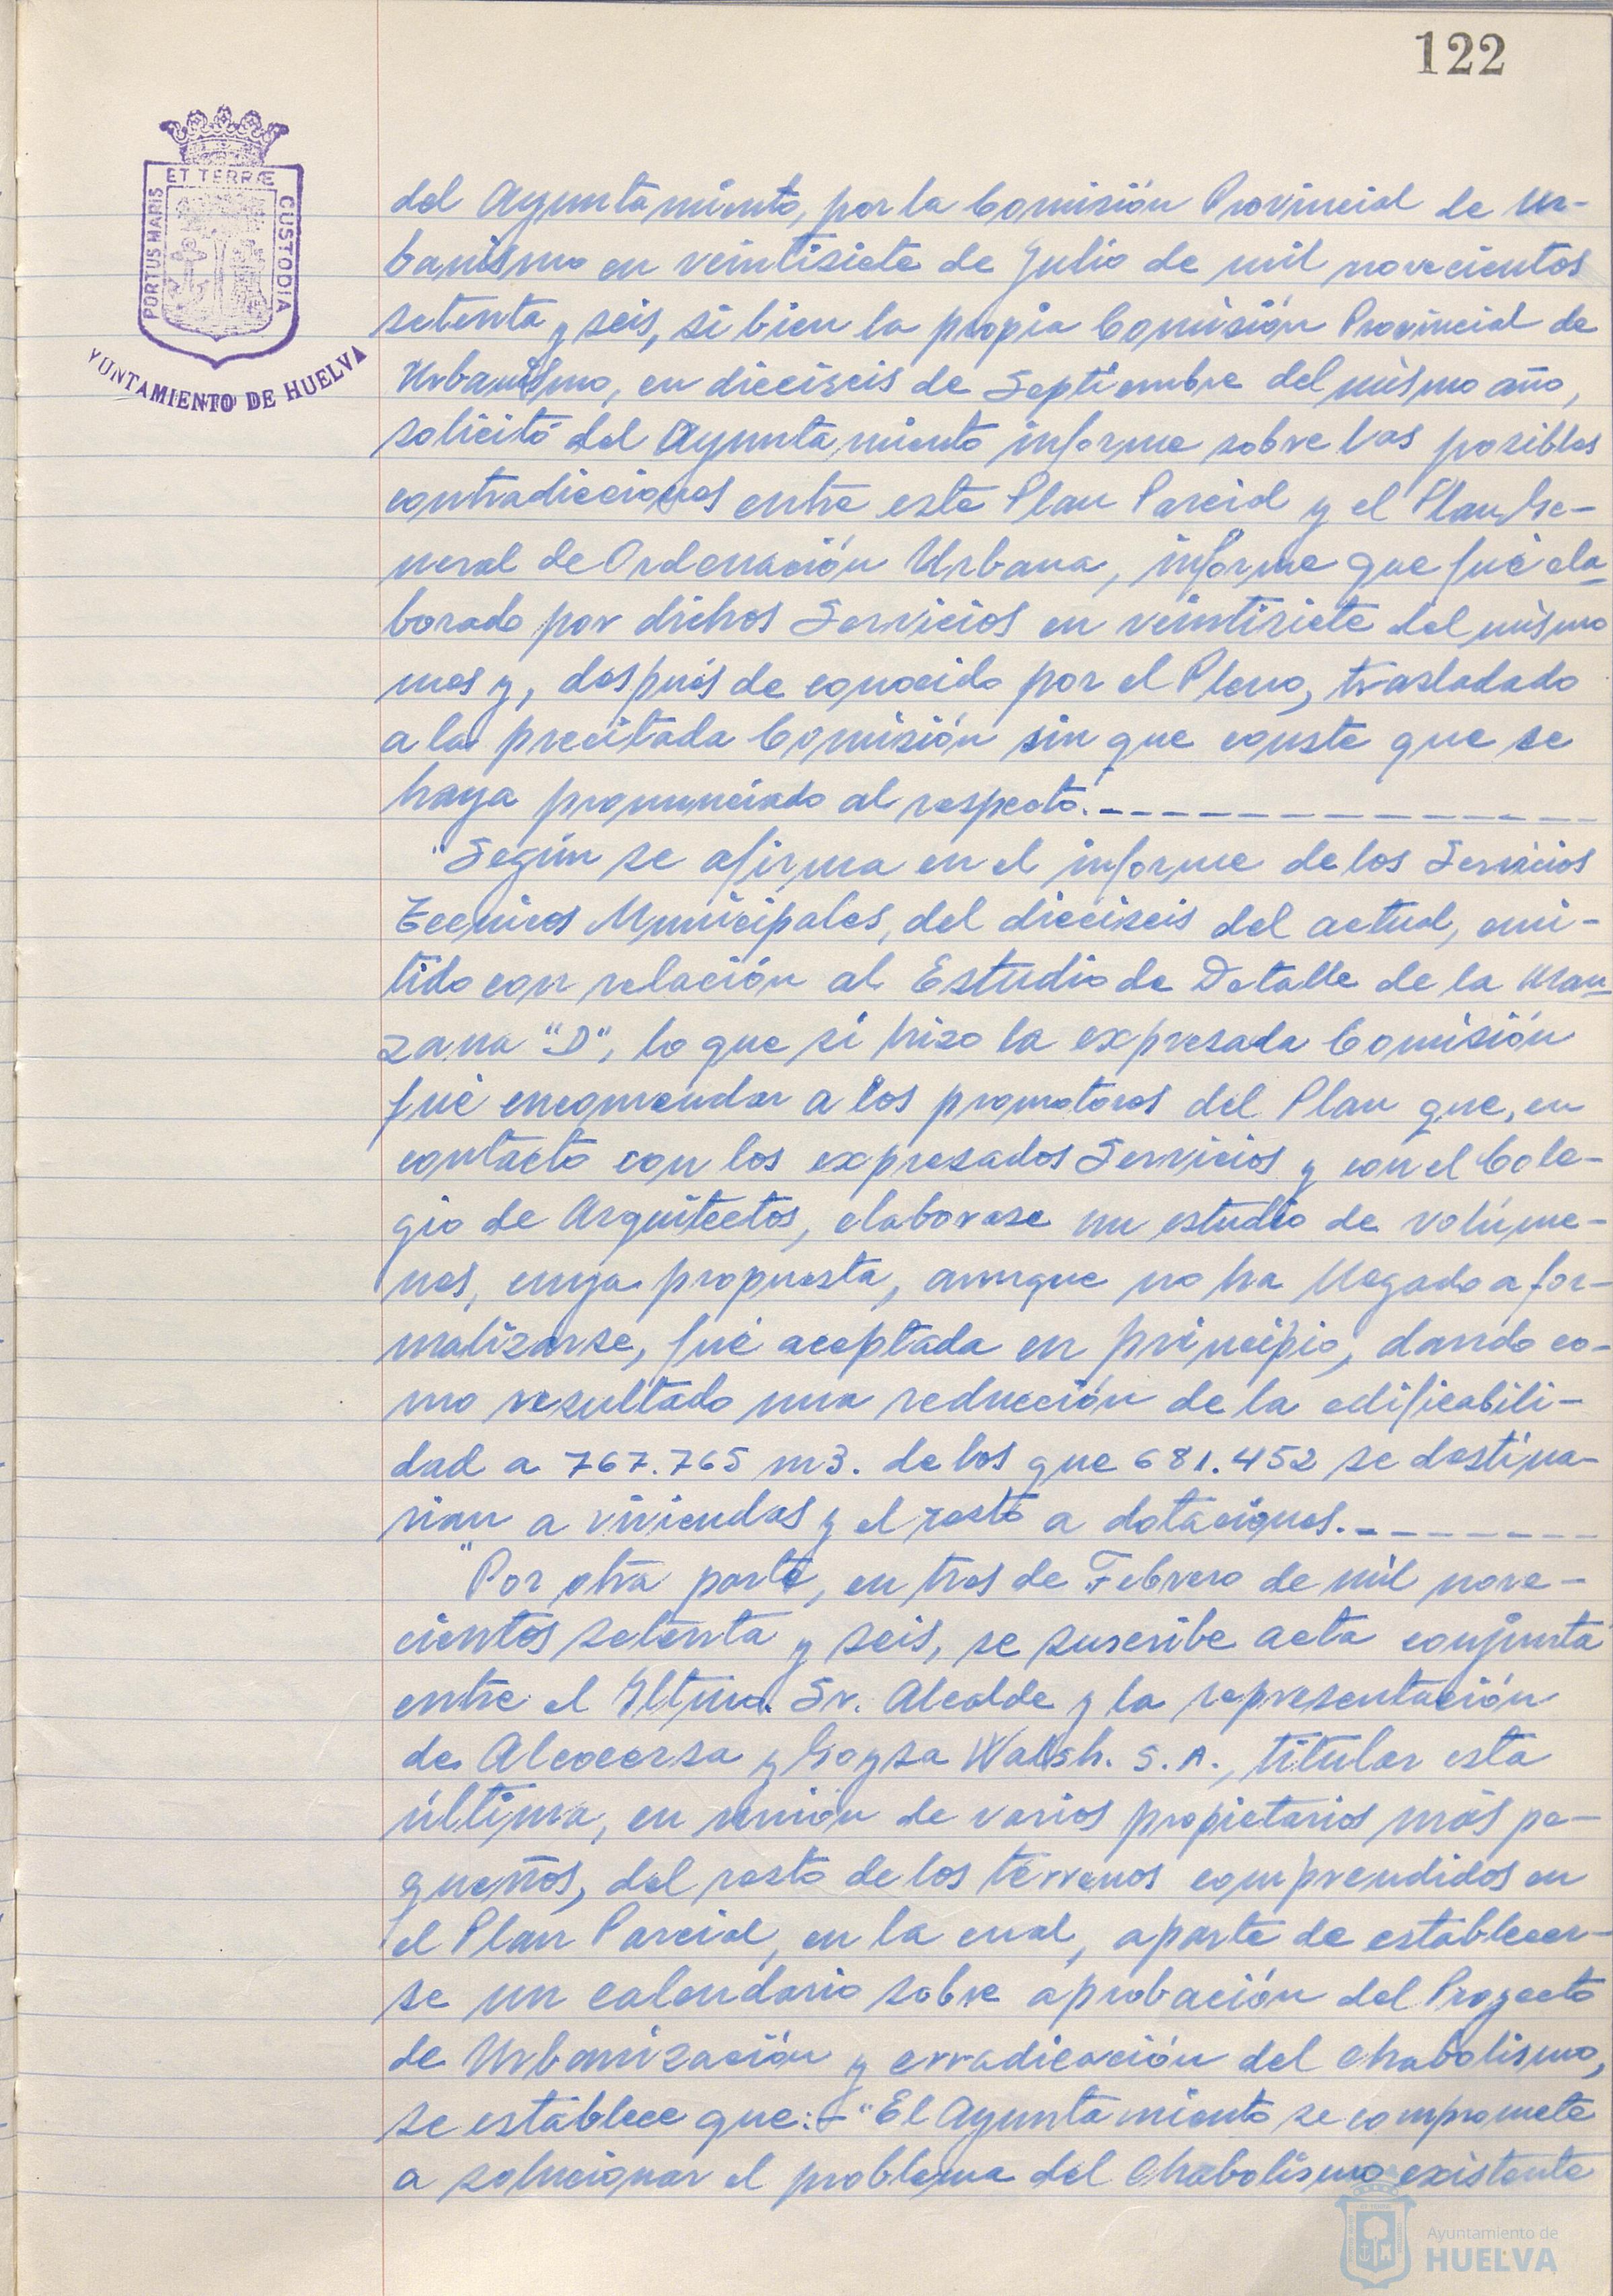 122
ET TERRÆ
PORTUS MARIS
CUSTODIA
YUNTAMIENTO DE HUELVA
del Ayuntamiento, por la Comisión Provincial de Ur-
banismo en veintisiete de Julio de mil novecientos
setenta y seis, si bien la propia Comisión Provincial de
Urbanismo, en dieciseis de Septiembre del mismo año,
solicitó del Ayuntamiento informe sobre las posibles
contradicciones entre este Plan Parcial y el Plan Ge-
neral de Ordenación Urbana, informe que fué ela-
borado por dichos Servicios en veintisiete del mismo
mes y, después de conocido por el Pleno, trasladado
a la precitada Comisión sin que conste que se
haya pronunciado al respecto.-
"Según se afirma en el informe de los Servicios
Tecnicos Municipales, del dieciseis del actual, emi-
tido con relación al Estudio de Detalle de la Man-
zana "D", lo que si hizo la expresada Comisión
fué encomendar a los promotores del Plan que, en
contacto con los expresados Servicios y con el Cole-
gio de Arquitectos, elaborase un estudio de volúme-
nes, cuya propuesta, aunque no ha llegado a for-
malizarse, fué aceptada en principio, dando co-
mo resultado una reducción de la edificabili-
dad a 767.765 m3. de los que 681.452 se destina-
rian a viviendas y el resto a dotaciones.-
"Por otra parte, en tres de Febrero de mil nove-
cientos setenta y seis, se suscribe acta conjunta
entre el Iltmo. Sr. Alcalde y la representación
de Alcocersa y Goysa Walsh. S.A., titular esta
última, en unión de varios propietarios más pe-
queños, del resto de los terrenos comprendidos en
el Plan Parcial, en la cual, aparte de establecer-
se un calendario sobre aprobación del Proyecto
de Urbanización y erradicación del chabolismo,
se establece que:- "El Ayuntamiento se compromete
a solucionar el problema del Chabolismo existente
Ayuntamiento de
HUELVA